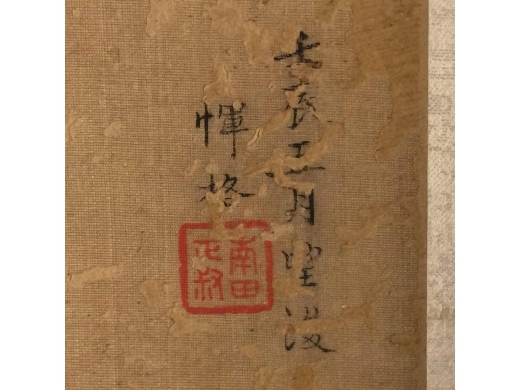 壬辰五月望後
惲格
南田
正叔